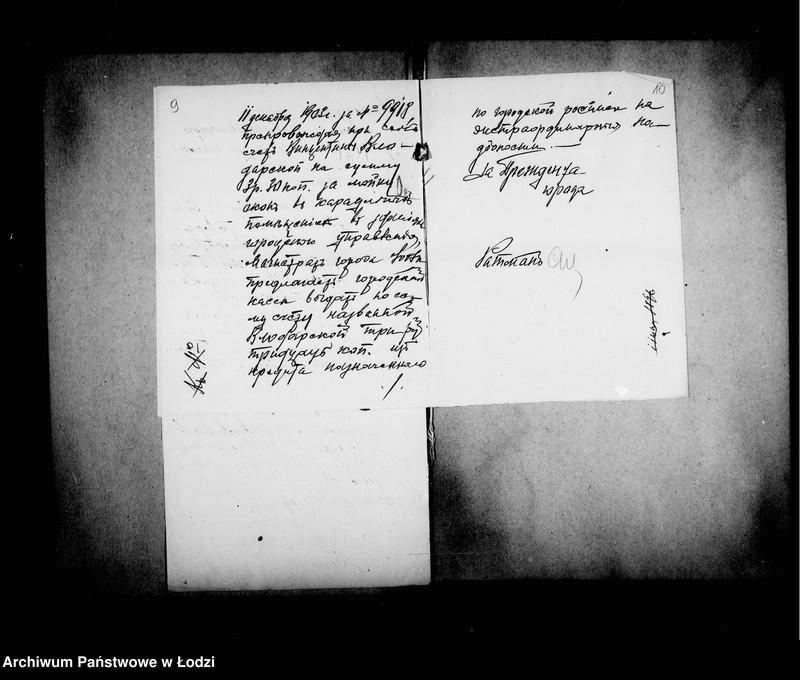 9
11 декабря 1902 г. за № 9918
препровождая при семъ
счетъ Винцентины Влю-
дарской на сумму
3 р. 30 коп. за мойку
оконъ въ караульномъ
помѣщеніи въ зданіи
городского управленія,
Магистратъ города
предлагаетъ городской
кассѣ выдать по се-
му счету названной
Влюдарской три руб.
тридцать коп. изъ
кредита назначеннаго
./.
10
по городской росписи на
экстраординарныя на-
добности.—
За Президента
города
Ратманъ
Archiwum Państwowe w Łodzi